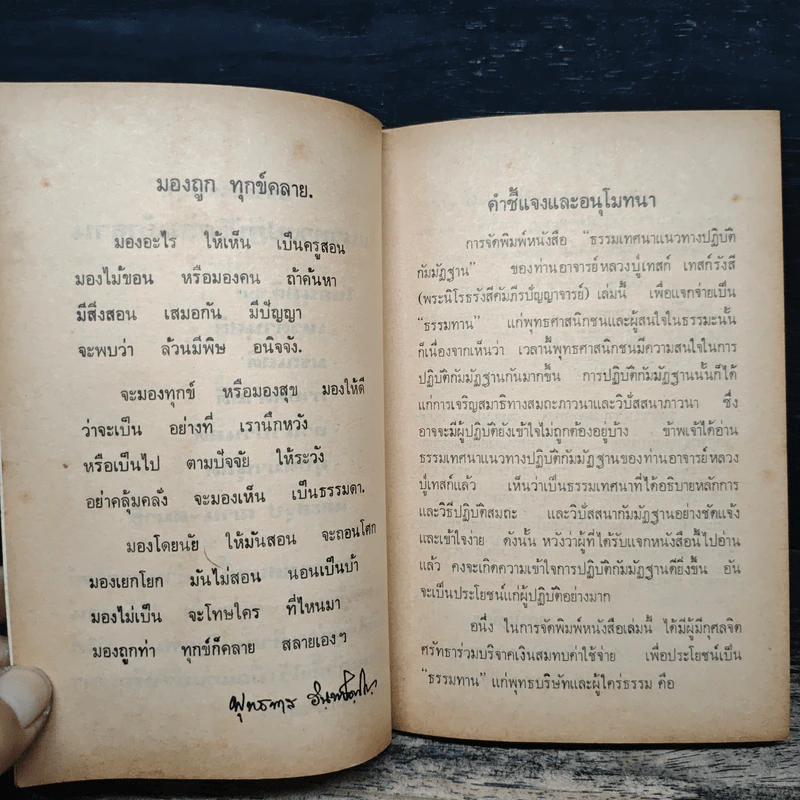 มองถูก ทุกข์คลาย.
มองอะไร ให้เห็น เป็นครูสอน
มองไม้ขอน หรือมองคน ถ้าค้นหา
มีสิ่งสอน เสมอกัน มีปัญญา
จะพบว่า ล้วนมีพิษ อนิจจัง.
จะมองทุกข์ หรือมองสุข มองให้ดี
ว่าจะเป็น อย่างที่ เรานึกหวัง
หรือเป็นไป ตามปัจจัย ให้ระวัง
อย่าคลุ้มคลั่ง จะมองเห็น เป็นธรรมดา.
มองโดยนัย ให้มันสอน จะถอนโศก
มองเยกโยก มันไม่สอน นอนเป็นบ้า
มองไม่เป็น จะโทษใคร ที่ไหนมา
มองถูกท่า ทุกข์ก็คลาย สลายเองฯ
พุทธทาส อินฺทปญฺโญ
คำชี้แจงและอนุโมทนา
การจัดพิมพ์หนังสือ “ธรรมเทศนาแนวทางปฏิบัติ
กัมมัฏฐาน” ของท่านอาจารย์หลวงปู่เทสก์ เทสก์รังสี
(พระนิโรธรังสีคัมภีรปัญญาจารย์) เล่มนี้ เพื่อแจกจ่ายเป็น
“ธรรมทาน” แก่พุทธศาสนิกชนและผู้สนใจในธรรมะนั้น
ก็เนื่องจากเห็นว่า เวลานี้พุทธศาสนิกชนมีความสนใจในการ
ปฏิบัติกัมมัฏฐานกันมากขึ้น การปฏิบัติกัมมัฏฐานนั้นก็ได้
แก่การเจริญสมาธิทางสมถะภาวนาและวิปัสสนาภาวนา ซึ่ง
อาจจะมีผู้ปฏิบัติยังเข้าใจไม่ถูกต้องอยู่บ้าง ข้าพเจ้าได้อ่าน
ธรรมเทศนาแนวทางปฏิบัติกัมมัฏฐานของท่านอาจารย์หลวง
ปู่เทสก์แล้ว เห็นว่าเป็นธรรมเทศนาที่ได้อธิบายหลักการ
และวิธีปฏิบัติสมถะ และวิปัสสนากัมมัฏฐานอย่างชัดแจ้ง
และเข้าใจง่าย ดังนั้น หวังว่าผู้ที่ได้รับแจกหนังสือนี้ไปอ่าน
แล้ว คงจะเกิดความเข้าใจการปฏิบัติกัมมัฏฐานดียิ่งขึ้น อัน
จะเป็นประโยชน์แก่ผู้ปฏิบัติอย่างมาก
อนึ่ง ในการจัดพิมพ์หนังสือเล่มนี้ ได้มีผู้มีกุศลจิต
ศรัทธาร่วมบริจาคเงินสมทบค่าใช้จ่าย เพื่อประโยชน์เป็น
“ธรรมทาน” แก่พุทธบริษัทและผู้ใคร่ธรรม คือ